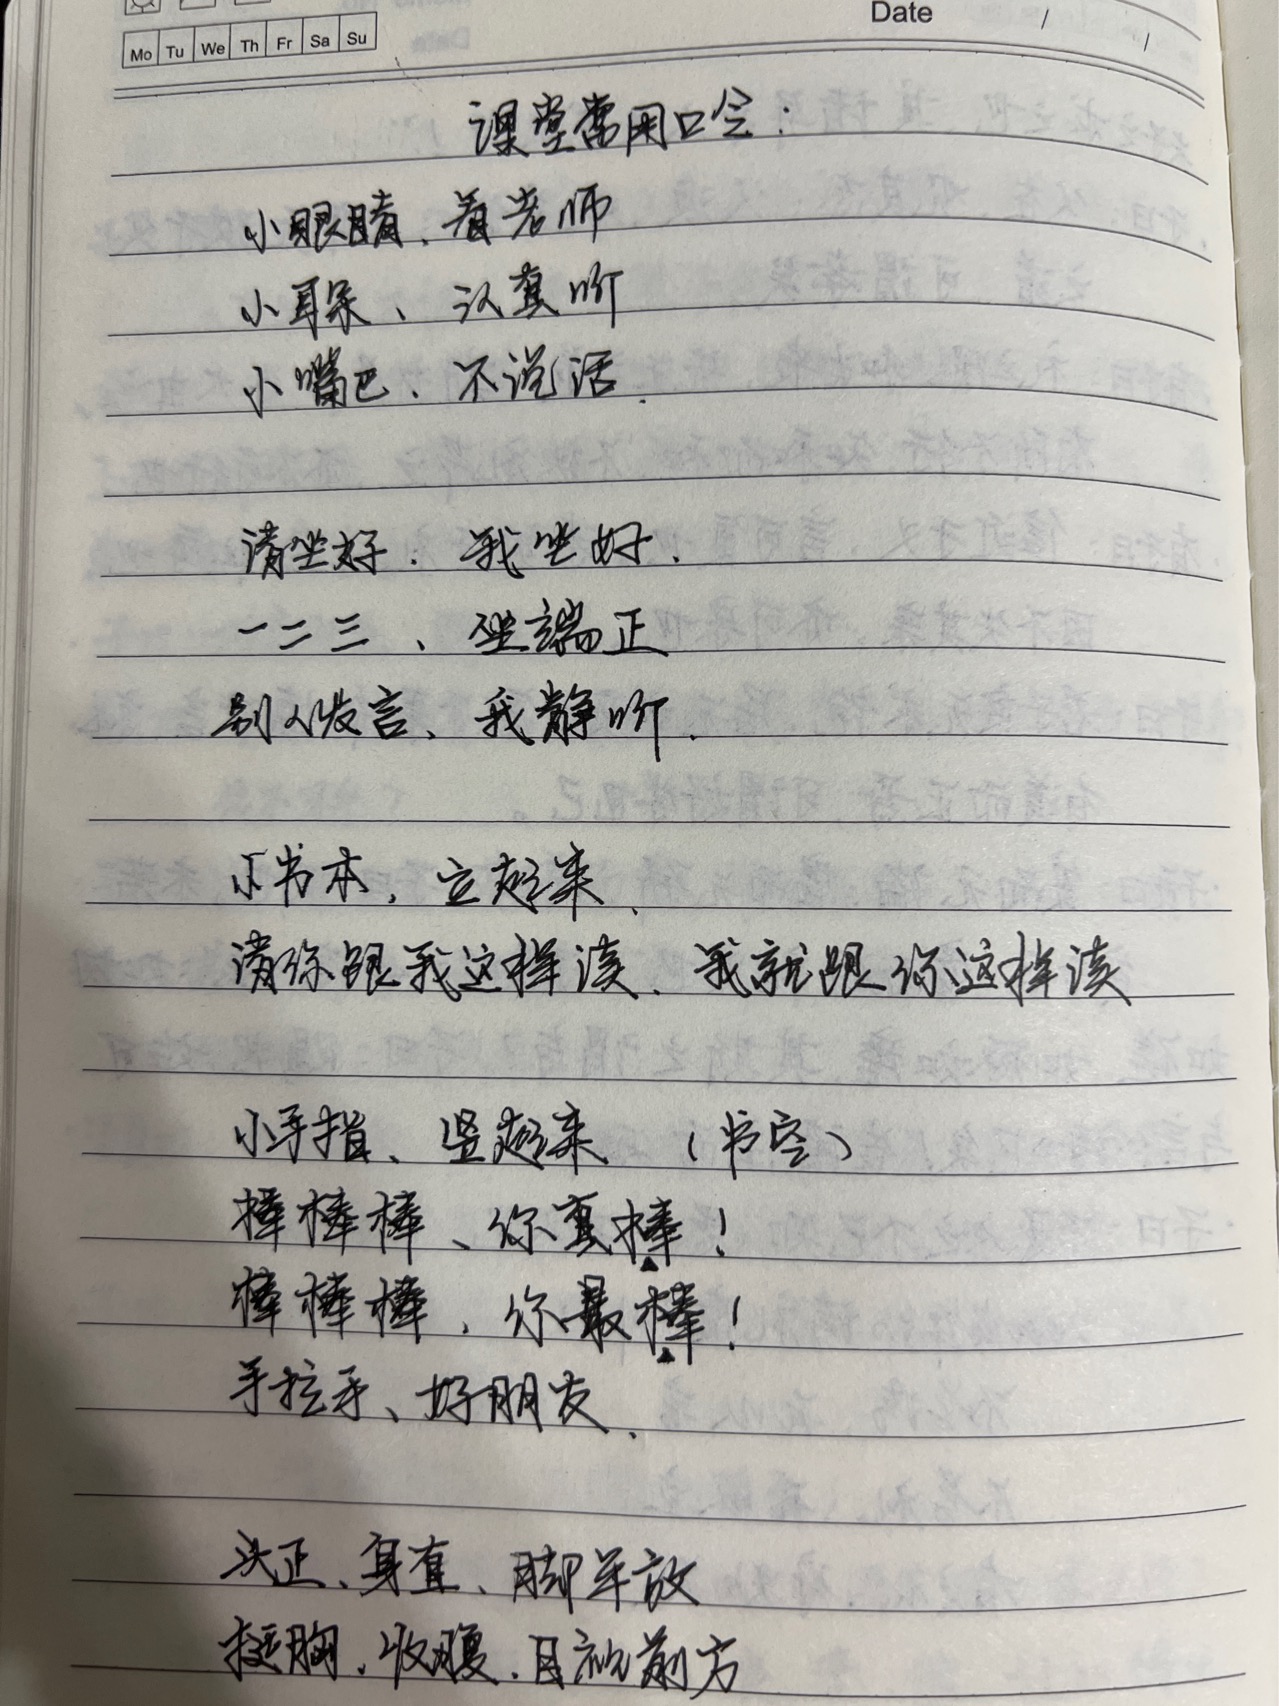 Date / /
Mo Tu We Th Fr Sa Su
课堂常用口令：
小眼睛、看老师
小耳朵、认真听
小嘴巴、不说话.
请坐好. 我坐好.
一二三、坐端正
别人发言、我静听.
小书本, 立起来.
请你跟我这样读、我就跟你这样读
小手指、竖起来 (书空)
棒棒棒、你真棒！
棒棒棒, 你最棒！
手拉手、好朋友.
头正、身直、脚平放
挺胸, 收腹, 目视前方